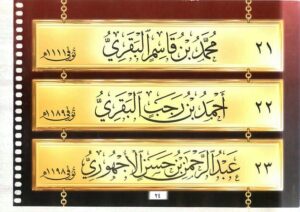 ٢١ مُحَمَّدُ بْنُ قَاسِمِ الْبَقَرِيُّ تُوُفِّيَ ١١١١هـ
٢٢ أَحْمَدُ بْنُ رَجَبٍ الْبَقَرِيُّ تُوُفِّيَ ١١٨٩هـ
٢٣ عَبْدُ الرَّحْمَنِ بْنُ حَسَنٍ الْأُجْهُورِيُّ تُوُفِّيَ ١١٩٨هـ
٢٤